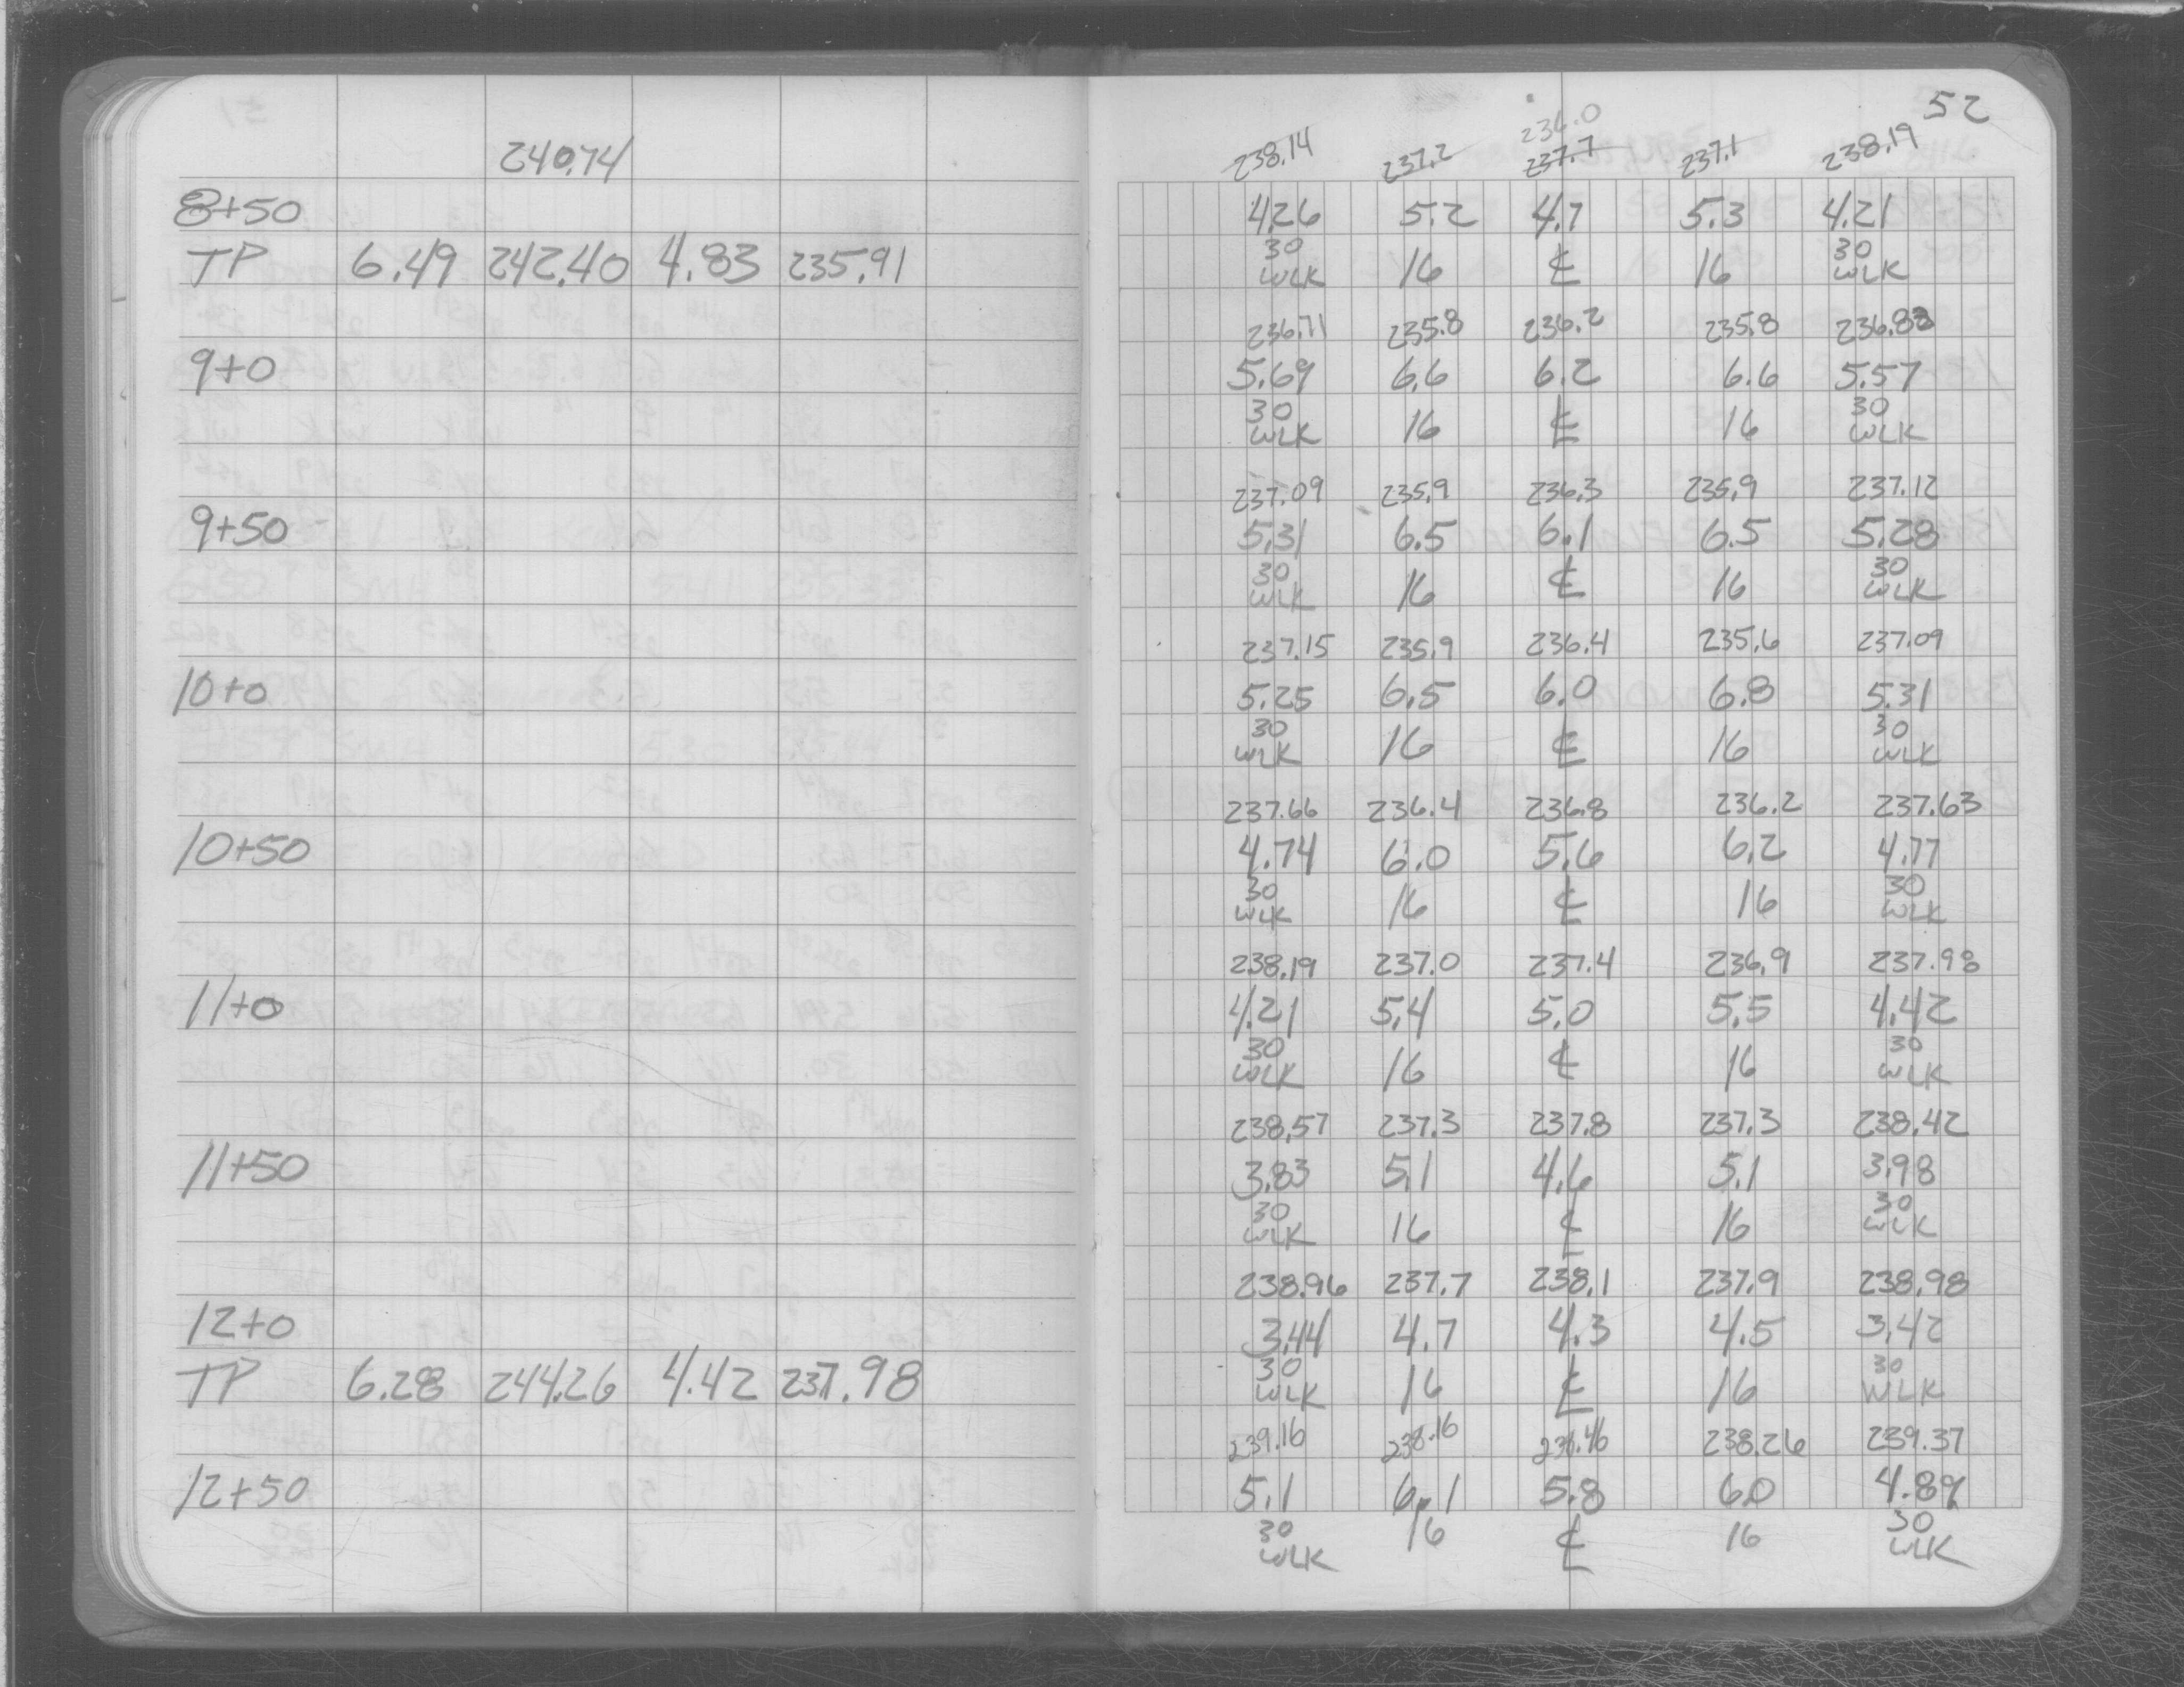 52
236.0
240.74 238.14 237.2 237.7 237.1 238.19
8+50 4.26 5.2 4.7 5.3 4.21
TP 6.49 242.40 4.83 235.91 30 WLK 16 ℄ 16 30 WLK
236.71 235.8 236.2 235.8 236.83
9+0 5.69 6.6 6.2 6.6 5.57
30 WLK 16 ℄ 16 30 WLK
237.09 235.9 236.3 235.9 237.12
9+50 5.31 6.5 6.1 6.5 5.28
30 WLK 16 ℄ 16 30 WLK
237.15 235.9 236.4 235.6 237.09
10+0 5.25 6.5 6.0 6.8 5.31
30 WLK 16 ℄ 16 30 WLK
237.66 236.4 236.8 236.2 237.63
10+50 4.74 6.0 5.6 6.2 4.77
30 WLK 16 ℄ 16 30 WLK
238.19 237.0 237.4 236.9 237.98
11+0 4.21 5.4 5.0 5.5 4.42
30 WLK 16 ℄ 16 30 WLK
238.57 237.3 237.8 237.3 238.42
11+50 3.83 5.1 4.6 5.1 3.98
30 WLK 16 ℄ 16 30 WLK
238.96 237.7 238.1 237.9 238.98
12+0 3.44 4.7 4.3 4.5 3.42
TP 6.28 244.26 4.42 237.98 30 WLK 16 ℄ 16 30 WLK
239.16 238.16 238.46 238.26 239.37
12+50 5.1 6.1 5.8 6.0 4.89
30 WLK 16 ℄ 16 30 WLK